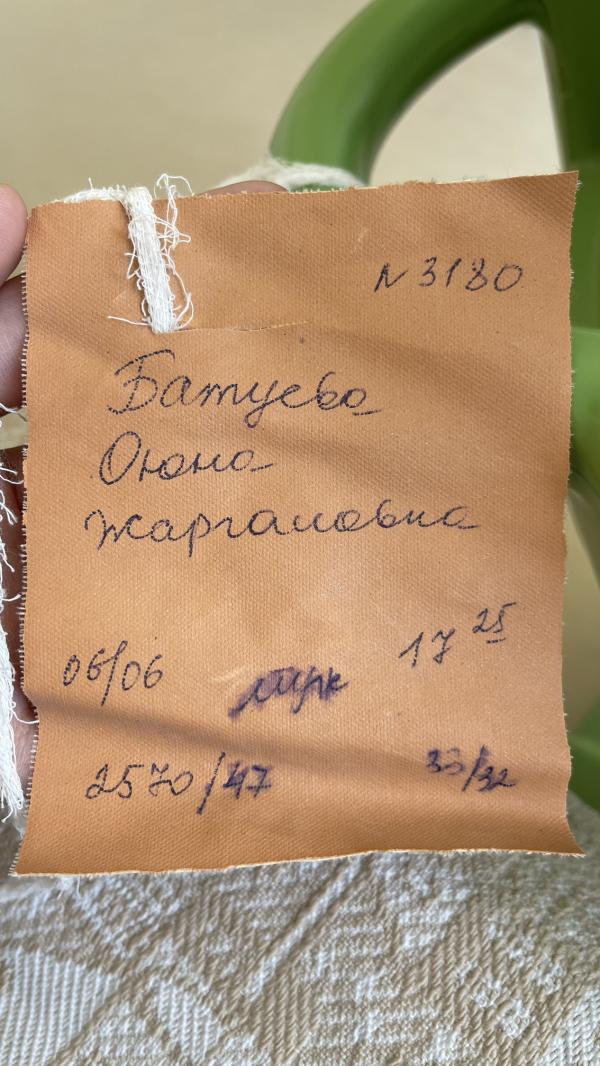 N 3180
Батуева
Оюна
Жаргаловна
06/06 мук 17 25
2570/47 33/32